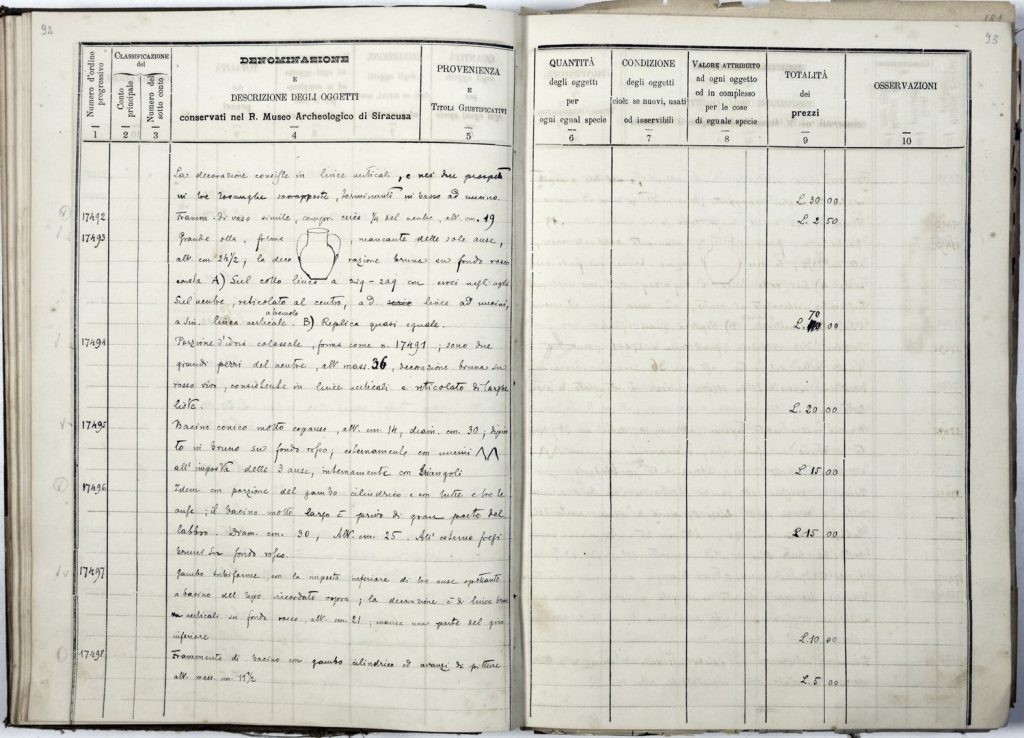 92
Numero d'ordine progressivo
CLASSIFICAZIONE del
Conto principale
Numero del sotto conto
DENOMINAZIONE
E
DESCRIZIONE DEGLI OGGETTI
conservati nel R. Museo Archeologico di Siracusa
PROVENIENZA
E
TITOLI GIUSTIFICATIVI
1 2 3 4 5
La decorazione consiste in linee verticali, e nei due prospetti
in tre losanghe sovrapposte, terminanti in basso ad uncino.
17492 Framm. di vaso simile, compr. circa 1/2 del ventre, alt. cm. 19
17493 Grande olla, forma mancante delle sole anse,
alt. cm. 24 1/2; la decorazione bruna su fondo rosso
consta A) Sul collo linea a zig-zag con croci negli
Sul ventre, reticolato al centro, a d. linee ad uncini,
a sin. linea verticale a tremolo. B) Replica quasi eguale.
17494 Porzione d'idria colossale, forma come n. 17491; sono due
grandi pezzi del ventre, alt. mass. 36, decorazione bruna su
rosso vivo, consistente in linee verticali e reticolato di larghe
liste.
17495 Bacino conico molto espanso, alt. cm. 14, diam. cm. 30; dipinto
in bruno su fondo rosso; esternamente con uncini
all'imposta delle 3 anse, internamente con triangoli
17496 Idem con porzione del gambo cilindrico e con tutte e tre le
anse; il bacino molto largo è privo di gran parte del
labbro. Diam. cm. 30, Alt. cm. 25. All'esterno fregi
bruni su fondo rosso.
17497 Gambo tubiforme, con la imposta inferiore di tre anse spettante
a bacino del tipo ricordato sopra; la decorazione è di linee brune
verticali su fondo rosso, alt. cm. 21; manca una parte del giro
inferiore
17498 Frammento di bacino con gambo cilindrico ed avanzi di pitture
alt. mass. cm. 11 1/2
93
QUANTITÀ
degli oggetti
per
ogni egual specie
CONDIZIONE
degli oggetti
cioè: se nuovi, usati
od inservibili
VALORE ATTRIBUITO
ad ogni oggetto
ed in complesso
per le cose
di eguale specie
TOTALITÀ
dei
prezzi
OSSERVAZIONI
6 7 8 9 10
L. 30 00
L. 2 50
L. 70 00
L. 20 00
L. 15 00
L. 15 00
L. 10 00
L. 5 00